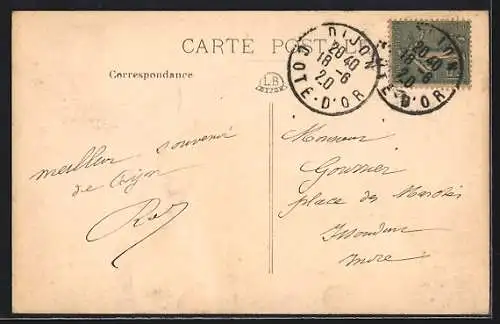 CARTE POSTALE
Correspondance
LB
DIJON
20 40
18 -6
20
COTE-D'OR
DIJON
20 40
18 -6
20
COTE-D'OR
meilleur souvenir
de Dijon
Monsieur
place des
Issoudun
Indre